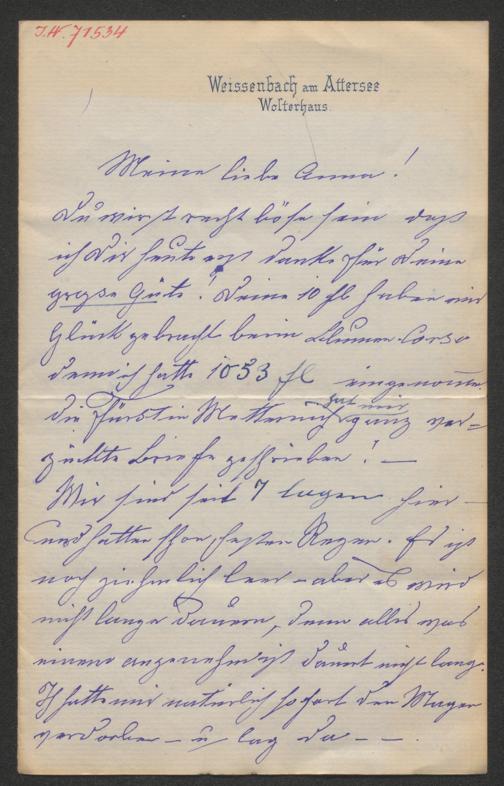 J.N. 71534
Weissenbach am Attersee
Wolterhaus.
Meine liebe Anna!
Du wirst recht böse sein daß
ich Dir heute erst danke für Deine
große Güte! Deine 10 fl haben mir
Glück gebracht beim Blumen-Corso
denn ich hatte 1053 fl eingenomen.
die Fürstin Metternich hat mir ganz ver-
zückte Briefe geschrieben! —
Wir sind seit 7 Tagen hier —
und hatten schon festen Regen. Es ist
noch ziehmlich leer – aber es wird
nicht lange dauern, denn alles was
einem angenehm ist dauert nicht lang.
Ich hatte mir natürlich sofort den Magen
verdorben – u lag da – – .